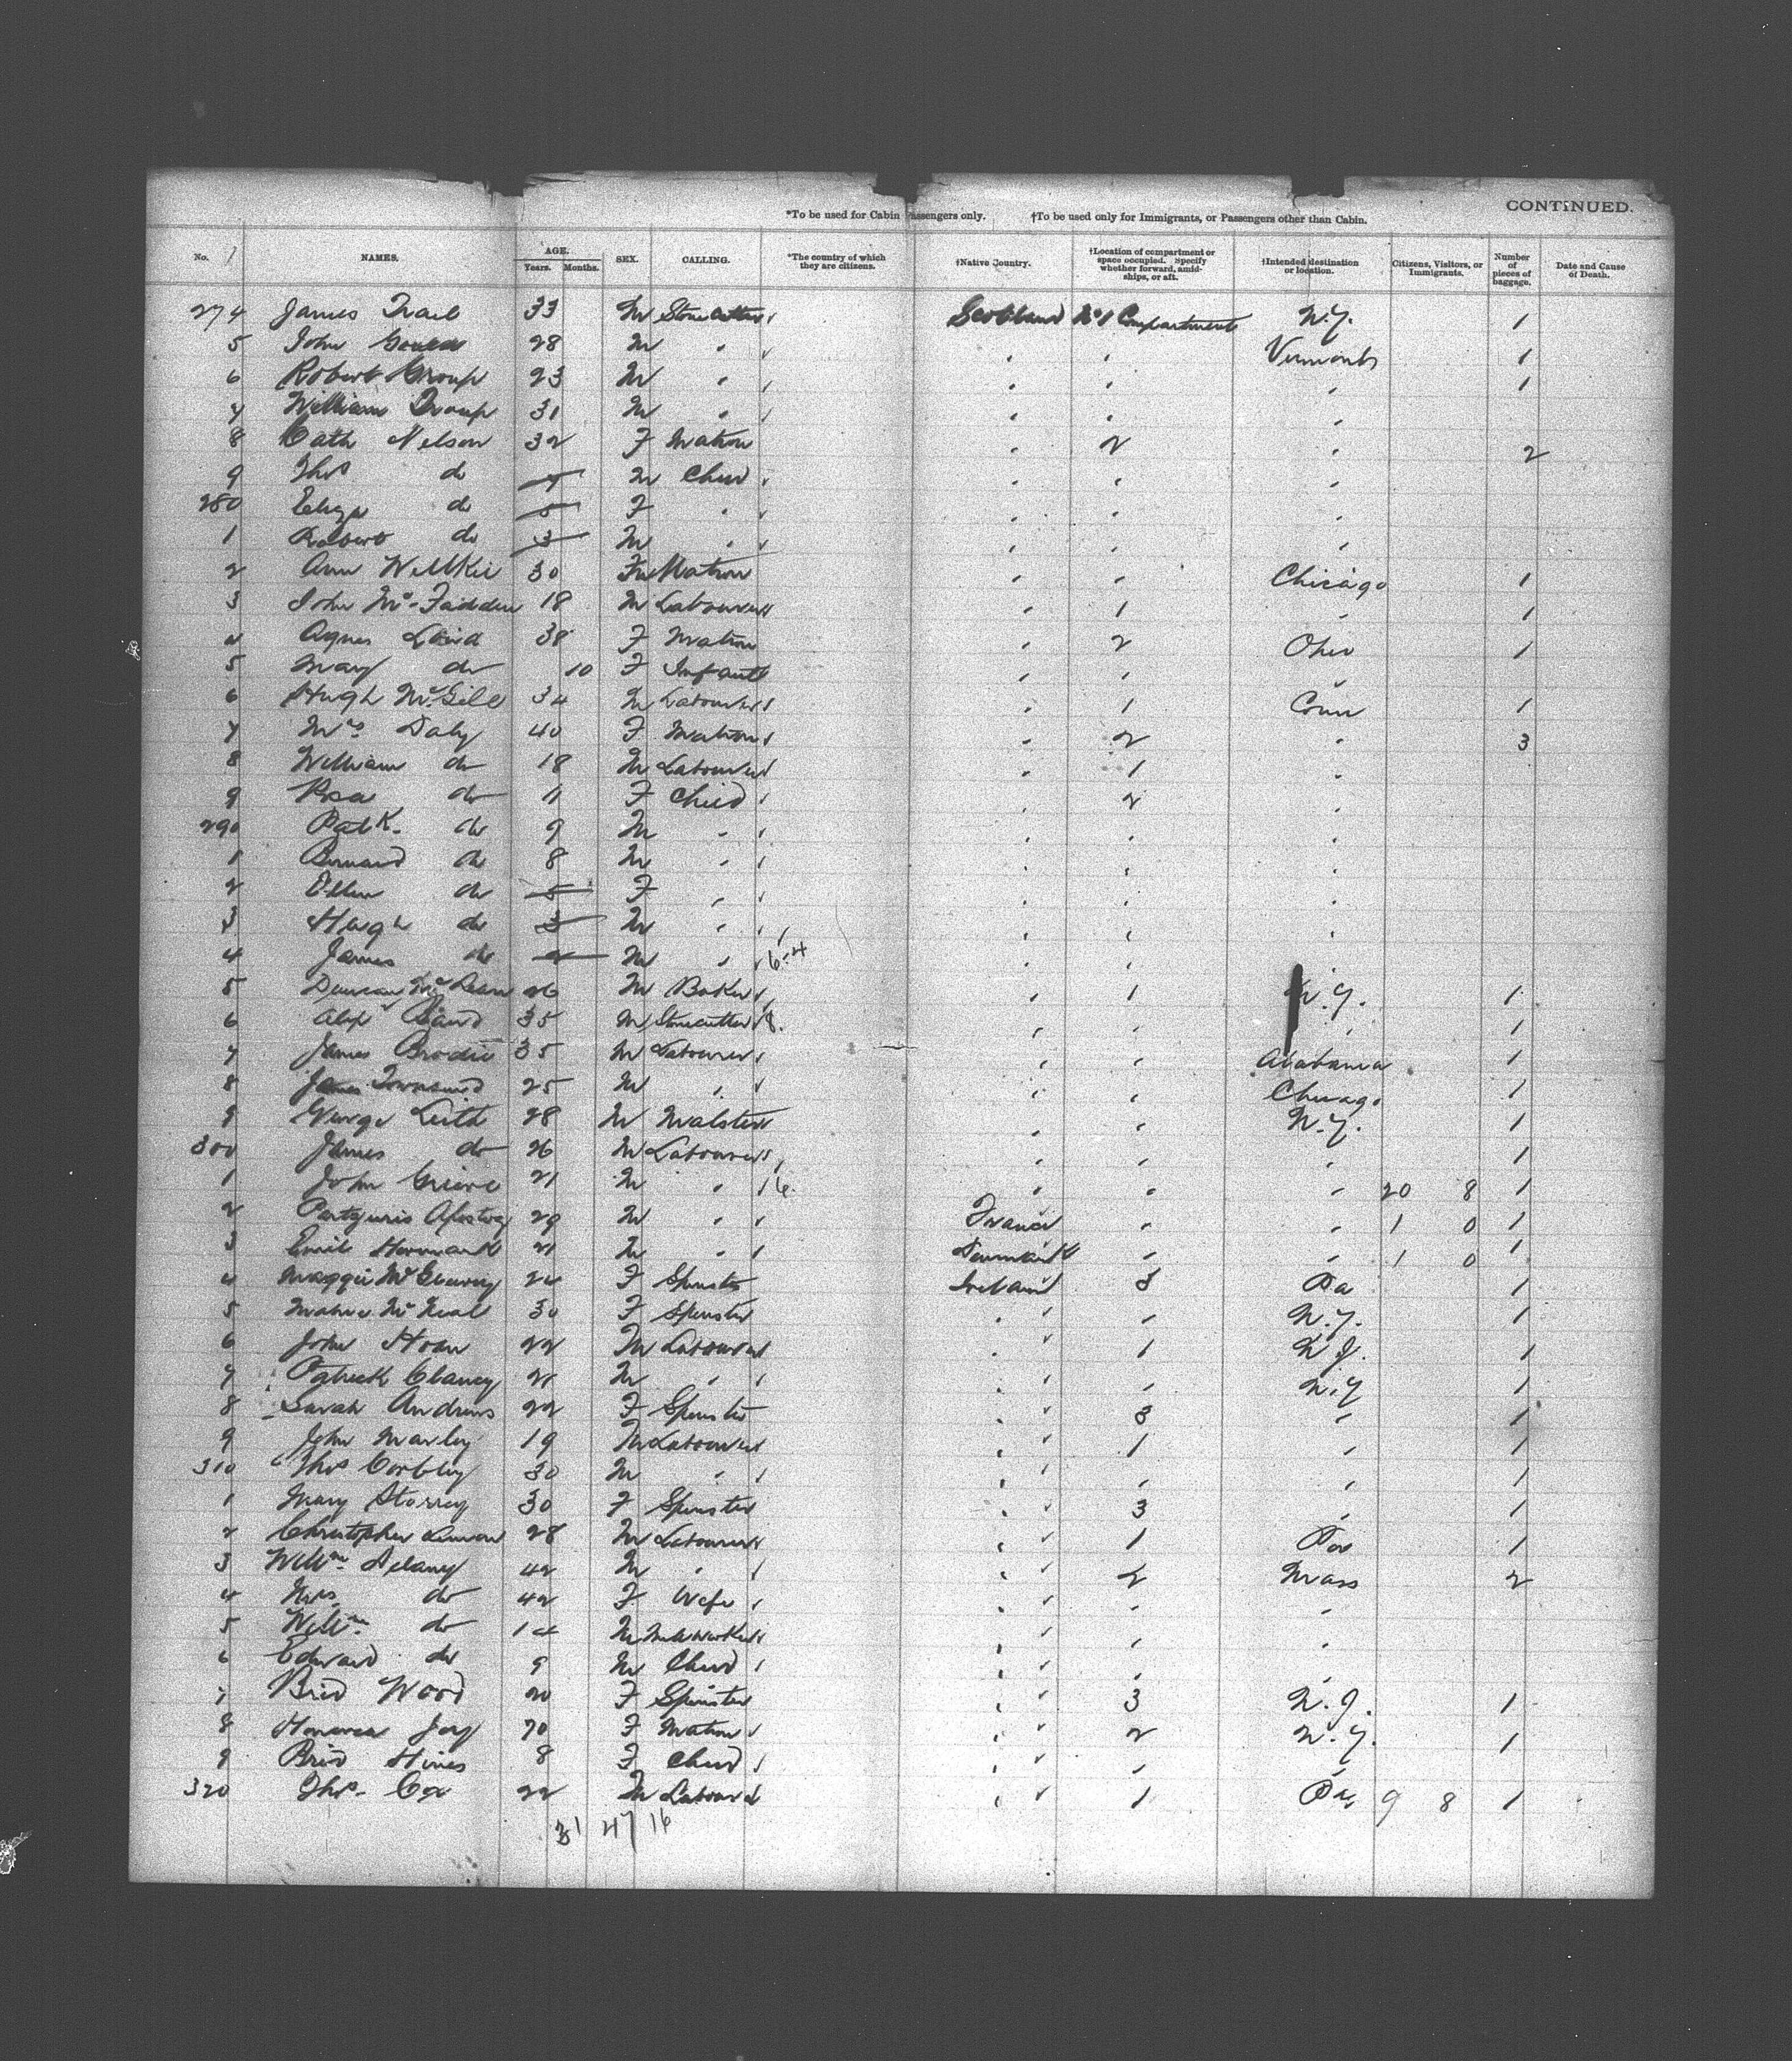 CONTINUED.
*To be used for Cabin Passengers only. †To be used only for Immigrants, or Passengers other than Cabin.
No. NAMES. AGE. Years. Months. SEX. CALLING. *The country of which they are citizens. †Native Country. †Location of compartment or space occupied. Specify whether forward, amidships, or aft. †Intended destination or location. Citizens, Visitors, or Immigrants. Number of pieces of baggage. Date and Cause of Death.
274 James Trail 33 M Stonecutter Scotland No 1 Compartment N.Y. 1
5 John 28 M " " " Vermont 1
6 Robert Group 23 M " " " " 1
7 William Troup 31 M " " " "
8 Cath Nelson 32 F Matron " 2 " 2
9 Thos do 7 M Child " " "
280 Eliza do 5 F " " " "
1 Robert do 3 M " " " "
2 Ann Wilkie 30 F Matron " " Chicago 1
3 John McFadden 18 M Labourer " 1 " 1
4 Agnes Laird 38 F Matron " 2 Ohio 1
5 Mary do 10 F Infant " " "
6 Hugh McGill 34 M Labourer " 1 Conn 1
7 Mrs Daly 40 F Matron " 2 " 3
8 William do 18 M Labourer " 1 "
9 Rosa do 11 F Child " 2 "
290 Patk. do 9 M " " " "
1 Bernard do 8 M " " " "
2 Ellen do 5 F " " " "
3 Hugh do 3 M " " " "
4 James do 2 M " 6-4 " " "
5 Duncan McLean 26 M Baker " 1 N.Y. 1
6 Alex Baird 35 M Stonecutter 8. " " " 1
7 James Brodie 35 M Labourer " " Alabama 1
8 James Townsend 25 M " " " Chicago 1
9 George Leith 28 M Malster " " N.Y. 1
300 James do 26 M Labourer " " " 1
1 John Grieve 21 M " 16. " " " 20 8 1
2 29 M " France " " 1 0 1
3 Emil 21 M " Denmark " " 1 0 1
4 Maggie 24 F Spinster Ireland 3 Pa 1
5 McNeal 30 F Spinster " " N.Y. 1
6 John Hoan 22 M Labourer " 1 N.J. 1
7 Patrick Clancy 21 M " " " N.Y 1
8 Sarah Andrews 22 F Spinster " 3 " 1
9 John Marley 19 M Labourer " 1 " 1
310 Thos Corbley 30 M " " " " 1
1 Mary Storrey 30 F Spinster " 3 " 1
2 Christopher 28 M Labourer " 1 Pa 1
3 Willm. Delaney 42 M " " 2 Mass 2
4 Mrs. do 42 F Wife " " "
5 Willm. do 14 M Millworker " " "
6 Edward do 9 M Child " " "
7 Brid Wood 20 F Spinster " 3 N.J. 1
8 Honorea Joy 70 F Matron " 2 N.Y. 1
9 Brid Hines 8 F Child " " "
320 Thos. Cox 22 M Labourer " 1 Pa 9 8 1
31 47 16